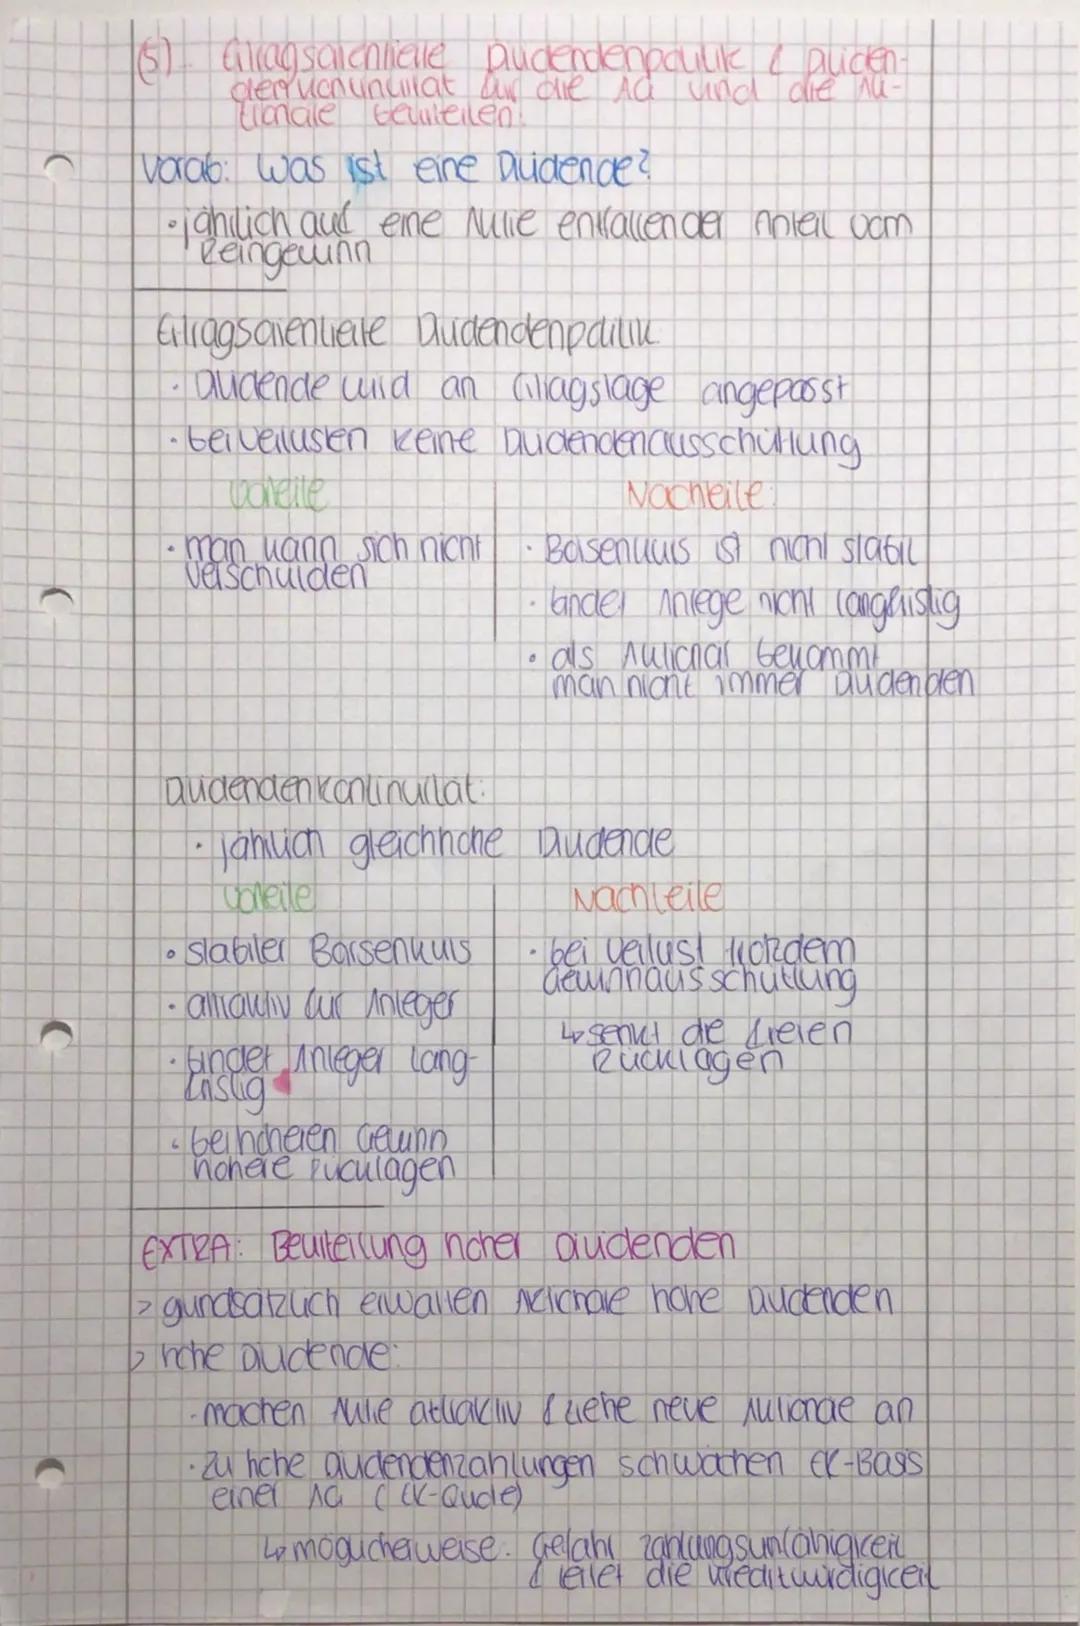 (5). Ertragsorientierte Dividendenpolitik & Dividen-
denkontinuität für die AG und die Ak-
tionäre beurteilen.
Vorab: Was ist eine Dividende?
• jährlich auf eine Aktie entfallender Anteil vom
Reingewinn
Ertragsorientierte Dividendenpolitik
• Dividende wird an Ertragslage angepasst
• bei Verlusten keine Dividendenausschüttung
Vorteile
Nachteile:
• man kann sich nicht
verschulden
• Börsenkurs ist nicht stabil
• bindet Anlege nicht langfristig
• als Aktionär bekommt
man nicht immer Dividenden
Dividendenkontinuität:
• jährlich gleichhohe Dividende
Vorteile
Nachteile
• stabiler Börsenkurs
• attraktiv für Anleger
• bindet Anleger lang-
fristig
• bei höheren Gewinn
höhere Rücklagen
• bei Verlust trotzdem
Gewinnausschüttung
↳ senkt die freien
Rücklagen
EXTRA: Beurteilung hoher Dividenden
> gundsätzlich erwarten Aktionäre hohe Dividenden
> hohe Dividende:
• machen Aktie attraktiv & ziehe neue Aktionäre an
• Zu hohe Dividendenzahlungen schwächen EK-Basis
einer AG (EK-Quote)
↳ möglicherweise: Gefahr Zahlungsunfähigkeit
& leitet die Kreditwürdigkeit